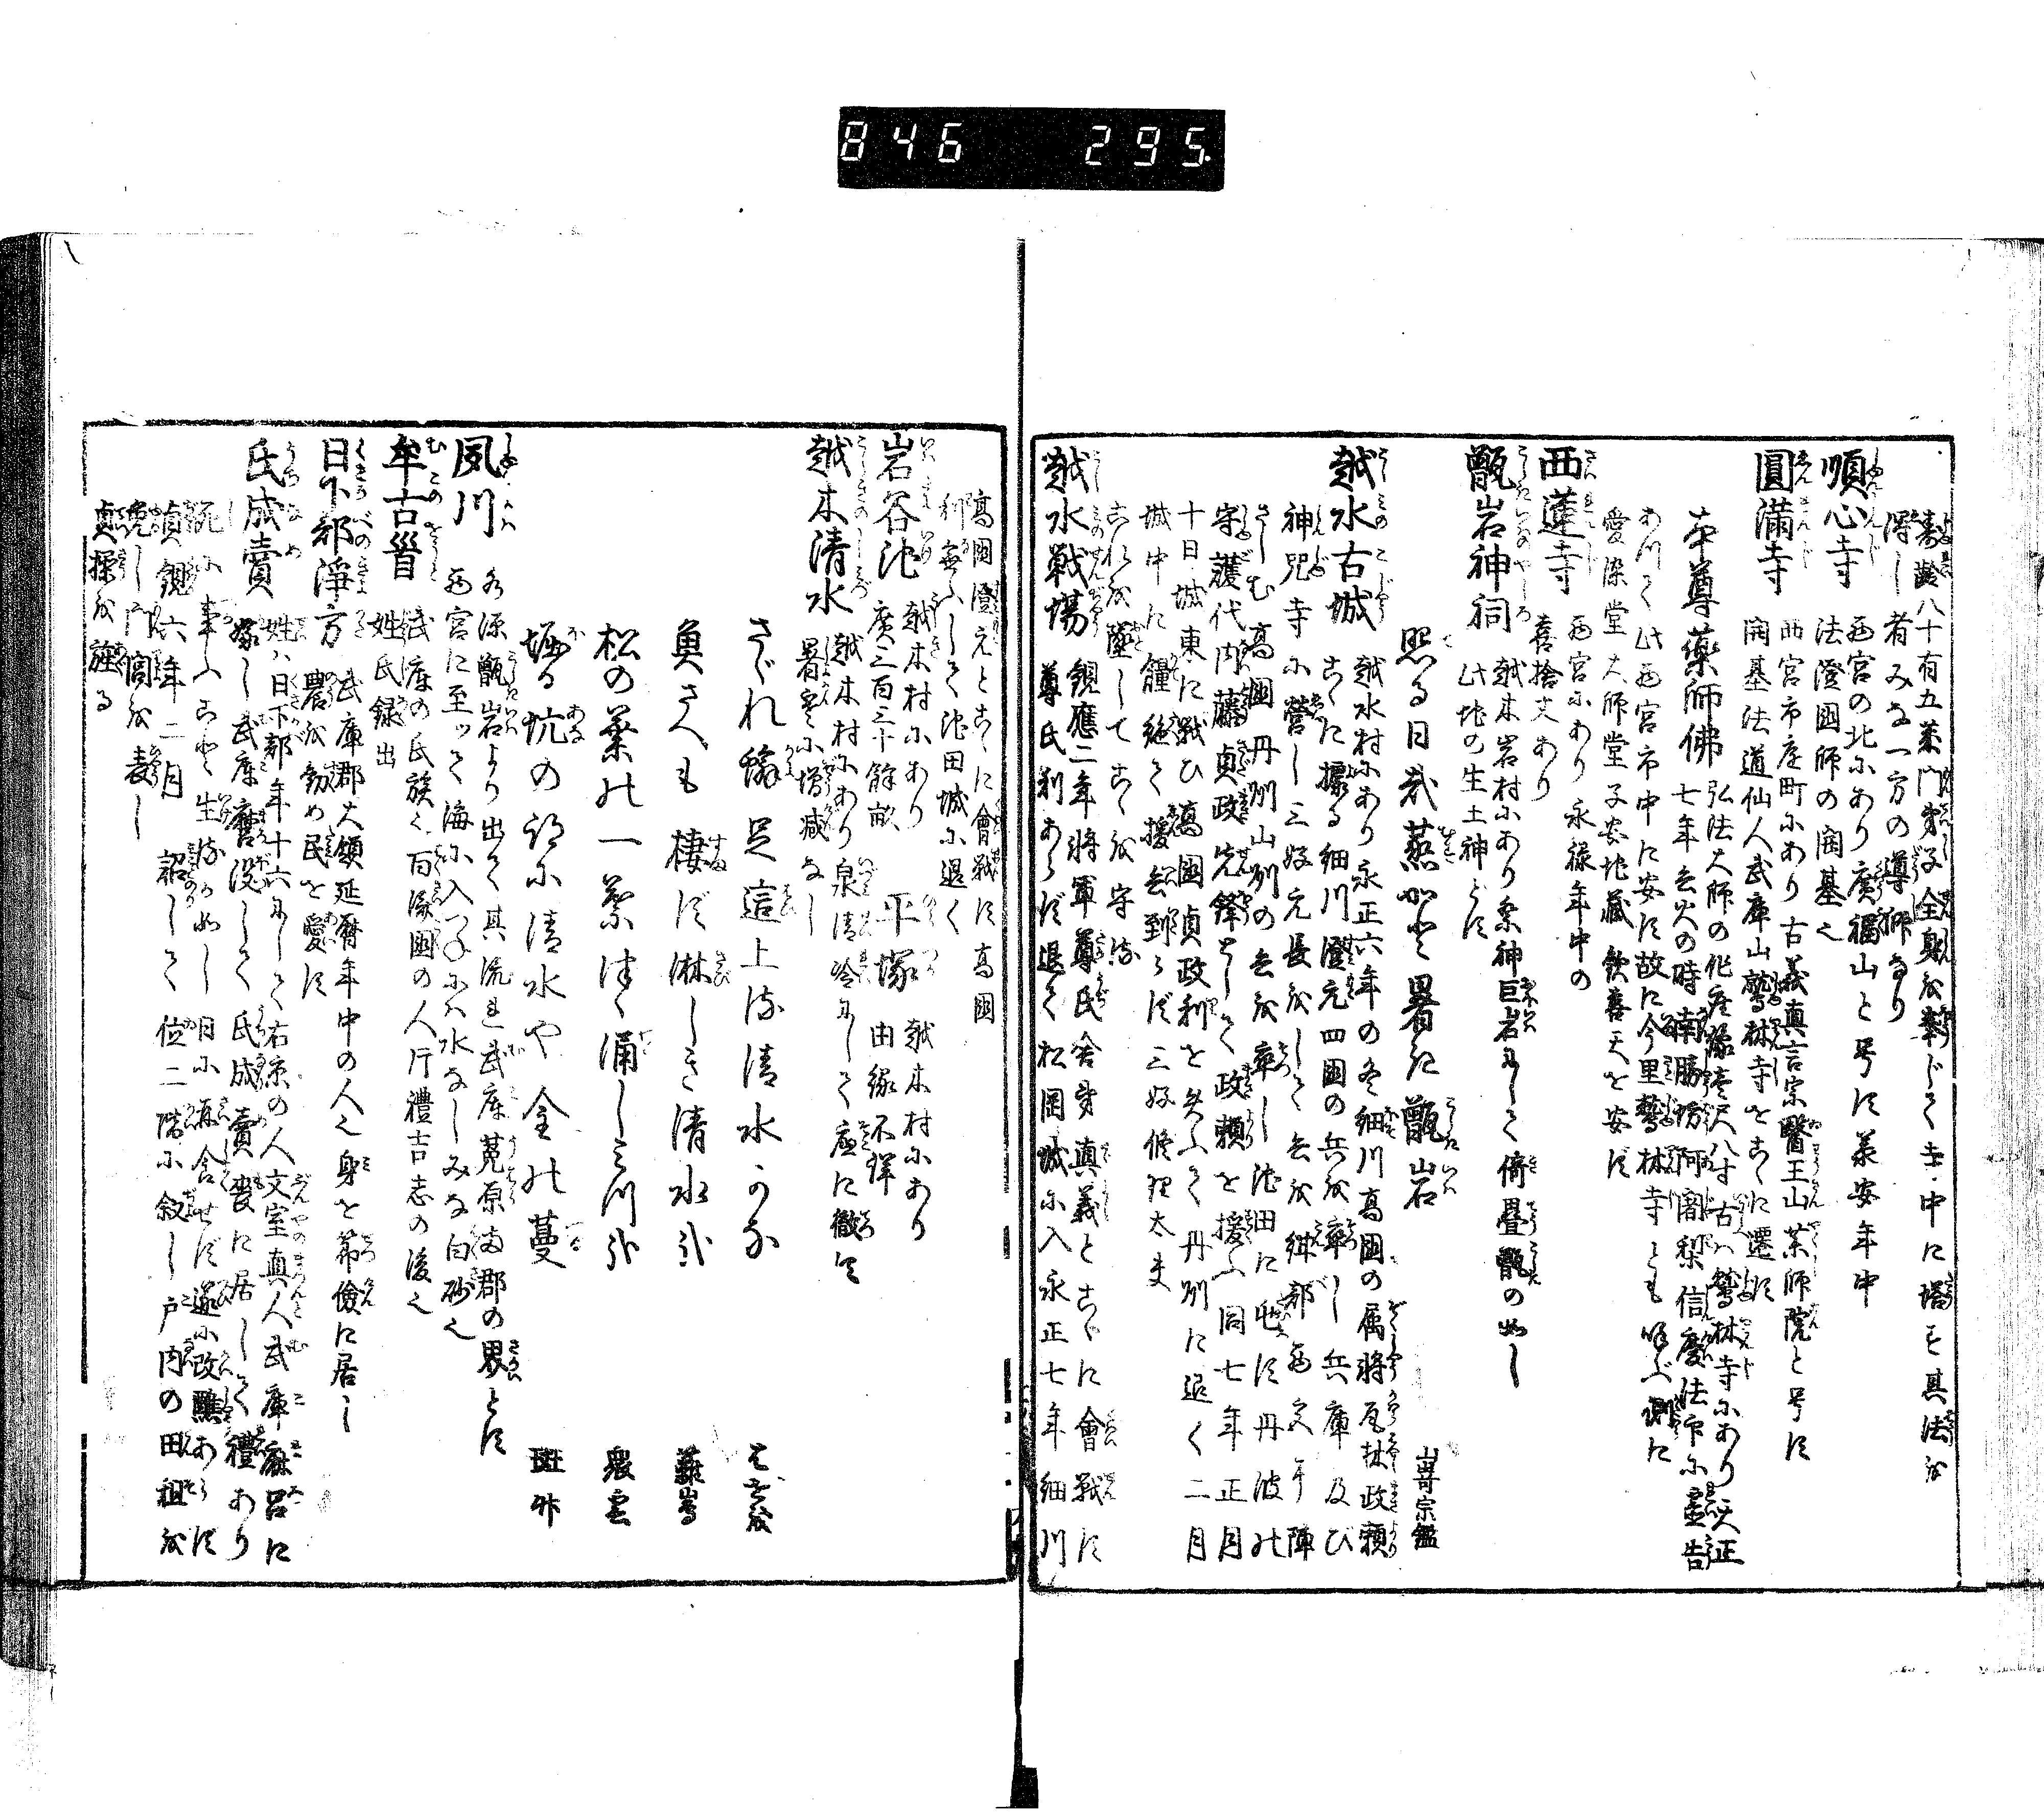 846 295.
寿齢八十有五葉門弟子全身を奉じて寺中に塔す其法を
得し者みな一方の導師なり
順心寺 西宮の北にあり廣福山と号す義安年中
法澄国師の開基也
圓満寺 西宮市庭町にあり古義真言宗醫王山薬師院と号す
開基法道仙人武庫山鷲林寺をこゝに遷す
本尊薬師佛 弘法大師の作座像壱尺八寸古ハ鷲林寺にあり天正
七年兵火の時南勝坊阿闍梨信慶法印に霊告
ありて此西宮市中に安す故に今里鷲林寺とも呼ぶ側に
愛染堂大師堂子安地蔵歓喜天を安ず
西蓮寺 西宮にあり永禄年中の
喜捨文あり
甑岩神祠 越木岩村にあり祭神巨岩にして倚疊甑の如し
此地の生土神とす
照る日哉蒸かと暑き甑岩 山崎宗鑑
越水古城 越水村にあり永正六年の冬細川高国の属将瓦林政頼
こゝに據る細川澄元四国の兵を率し兵庫及び
神咒寺に營し三好元長をして兵を
さしむ高国丹州山列の兵を率し池田に屯す丹波の
守護代内藤貞政先鋒として政頼を援ふ同七年正月
十日城東に戦ひ高国貞政利を失ふて丹列に退く二月
城中に糧絶て援兵到らず三好修理太夫
これを墜してこゝを守る
越水戦場 観應二年将軍尊氏舎弟真義とこゝに會戦す
尊氏利あらず退て松岡城に入永正七年細川
高国澄元とこゝに會戦す高国
利無ふして池田城に退く
岩谷池 越木村にあり
廣三百三十餘畝
平塚 越木村にあり
由縁不詳
越木清水 越木村にあり泉清冷にして底に徹す
暑寒に増減なし
さゞれ蟹足這上る清水かな はせを
魚さへも棲ず淋しき清水哉 蘿嵩
松の葉の一葉づゝ涌し清水哉 衆雲
堀る坑の許に清水や全の蔓 斑竹
夙川 水源甑岩より出て其流を武庫菟原両郡の界とす
西宮に至ッて海に入つねにハ水なしみな白砂也
牟古首 武庫の氏族也百済国の人片禮吉志の後也
姓氏録出
日下部淨方 武庫郡大領延暦年中の人也身を節儉に居し
農を勧め民を愛す
氏成賣 姓ハ日下部年十六にして右京の人文室真人武庫麻呂に
嫁し武庫麿没して氏成賣喪に居して禮あり
死に事ふこと生るか如し日に再食せず遂に改醮あらず
貞観六年二月 詔して位二階に叙し戸内の田租を
免し門閭を表し
貞操を旌る